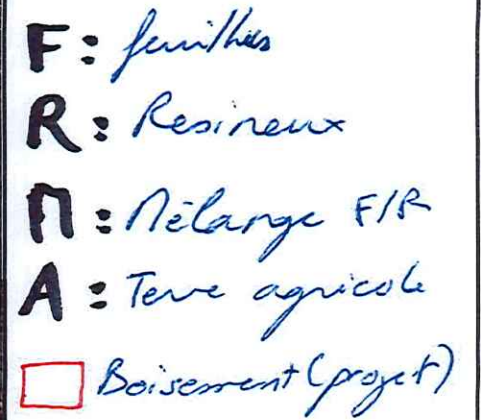 F : feuillus
R : Resineux
M : Mélange F/R
A : Terre agricole
Boisement (projet)